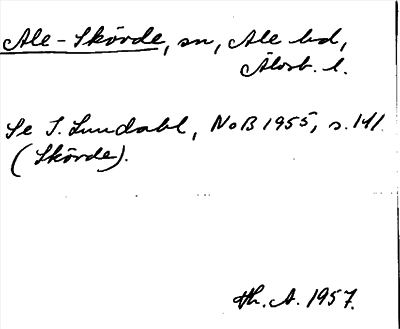 Ale-Skövde, sn, Ale hd,
Älvsb. l.
Se I. Lundahl, NoB 1955, s. 141
(Skövde).
Th. A. 1957.